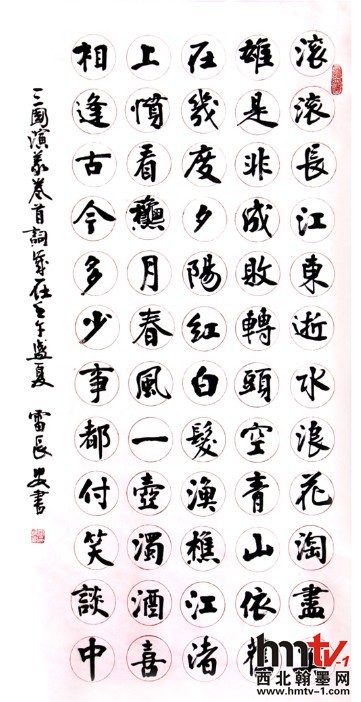 滚滚長江東逝水浪花淘盡
雄是非成敗轉頭空青山依舊
在幾度夕陽紅白髮漁樵江渚
上慣看龝月春風一壺濁酒喜
相逢古今多少事都付笑談中
三國演義卷首詞歲在壬午盛夏 雷長安書
hmtv-1
西北翰墨网
www.hmtv-1.com